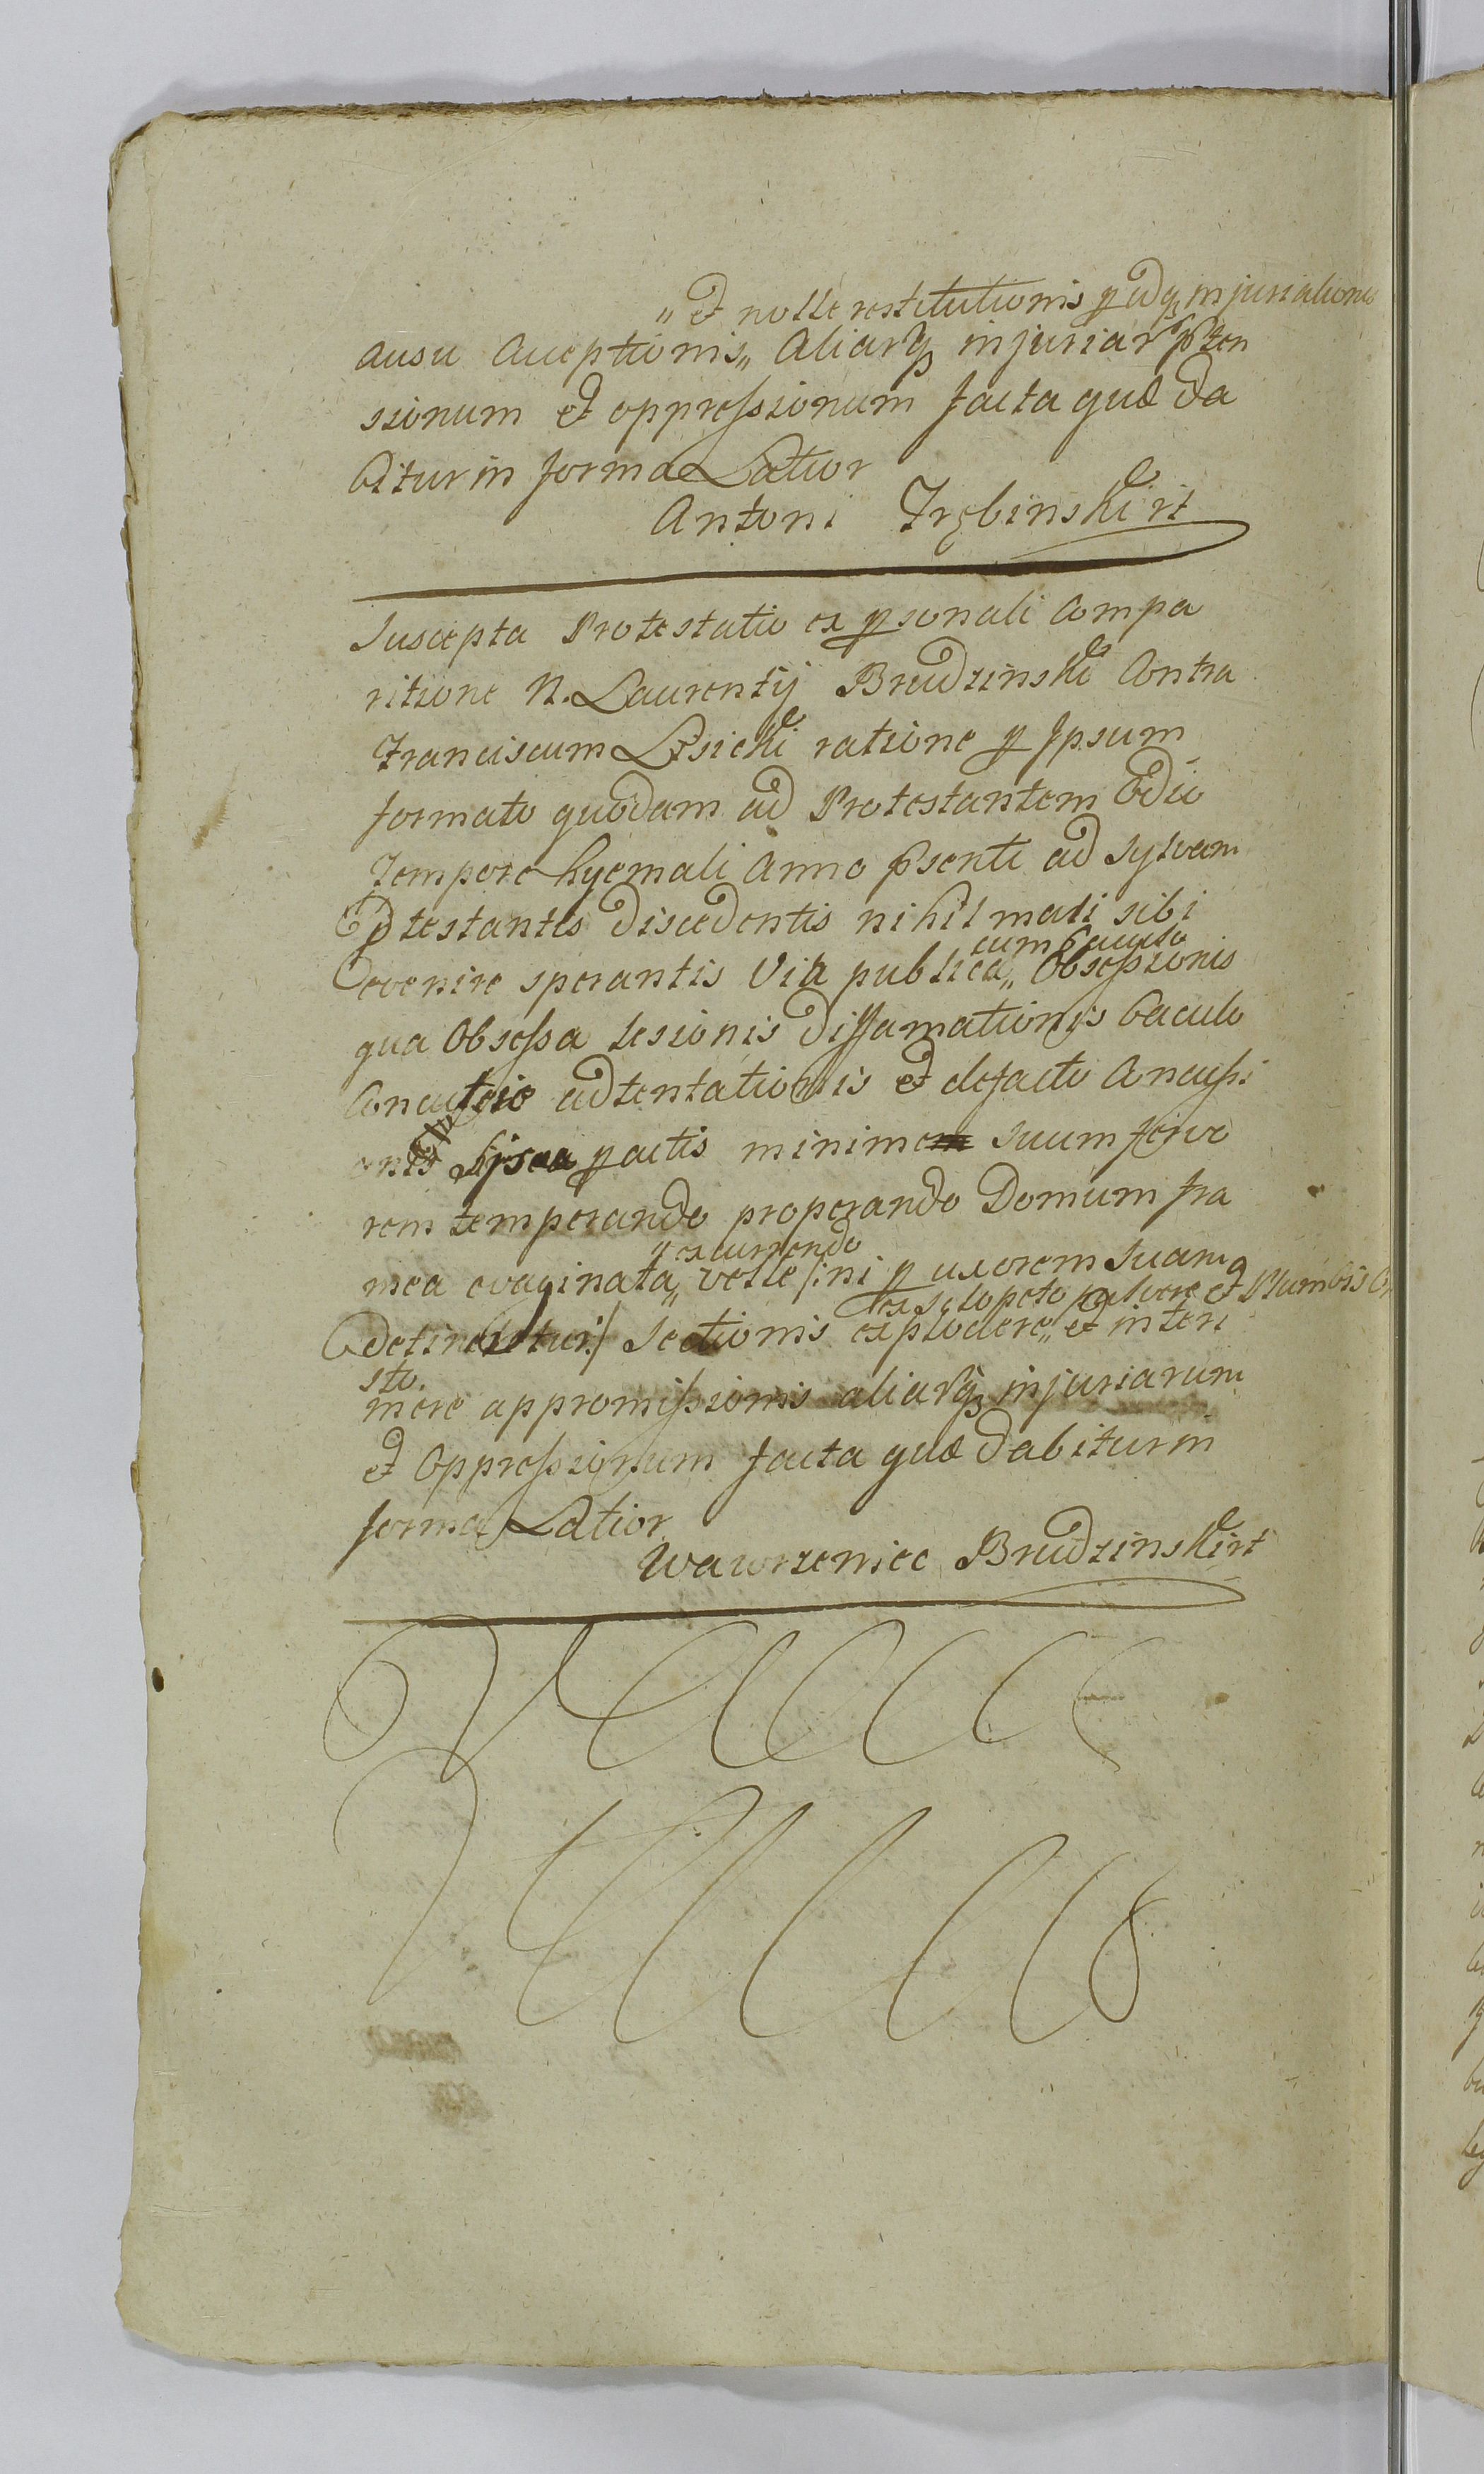 „ et nolle restitutionis p adq injuriationis
ausu Acceptionis „ Aliarq injuriar pten
sionum et oppressionum facta quæ da
bitur in forma Latior
Antoni Trębinski rt
Suscepta Protestatio ex psonali Compa
ritione N. Laurentij Brudzinski Contra
Franciscum Lisicki ratione p Ipsum
formato quodam ad Protestantem Odio
tempore hyemali Anno psenti ad Sylvam
Ptestantis discedentis nihil mali sibi
cum baculo
evenire sperantis Via publica „ Obsessionis
qua Obsessa Lesionis diffamationis baculo
adtentationis et defacto Concussi
onis pactis minime suum furo
rem temperando properando Domum fra
p excurrendo
mea evaginata „ velle /:ni p uxorem Suam
ex sclopeto pulvere et Plumbis
detineretur:/ Sectionis explodere „ et interi
sto.
mere appromissionis aliarq injuriarum
et Oppressionum facta quæ dabitur in
forma Latior
Wawrzeniec Brudzinski rt